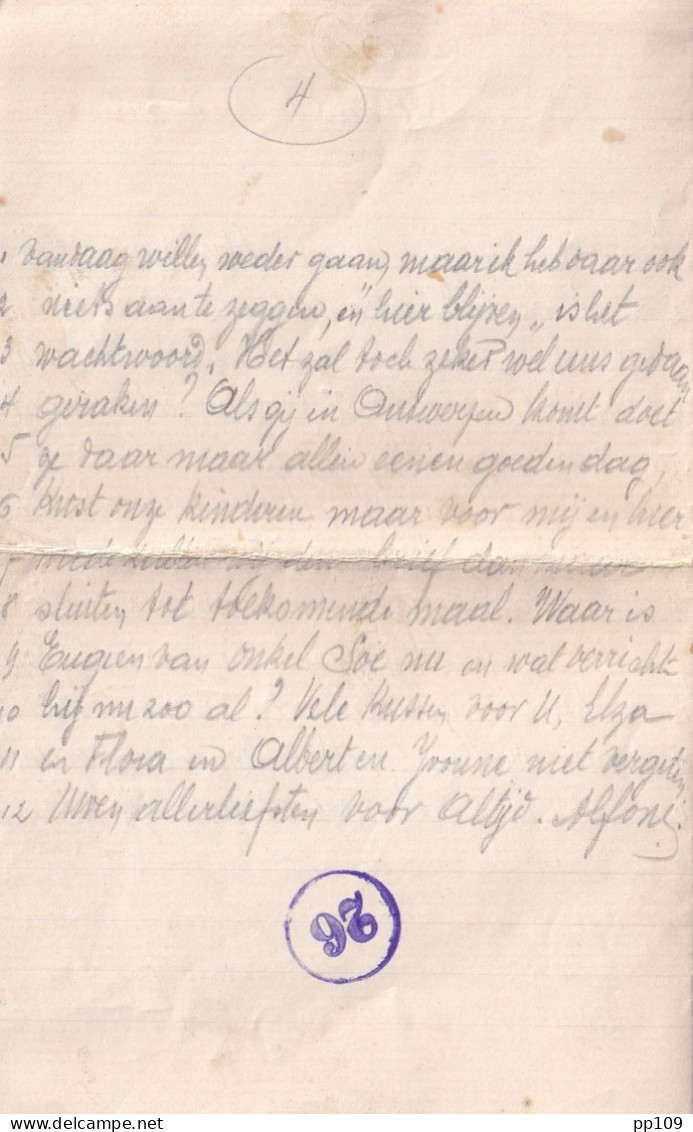 4
1 vandaag willen weder gaan, maar ik heb daar ook
2 niets aan te zeggen, en "hier blijven" is het
3 wachtwoord. Het zal toch zeker wel eens gedaan
4 geraken? Als gij in Antwerpen komt doet
5 ge daar maar allen eenen goeden dag,
6 Kust onze kinderen maar voor mij en hier
7 mede den brief
8 sluiten tot toekomende maal. Waar is
9 Eugien van onkel Soé nu en wat verricht
10 hij nu zoo al? Vele Kussen voor U, Elza
11 en Flora en Albert en Yvonne niet vergeten
12 Uwen allerliefsten voor Altijd. Alfons.
26
delcampe.net
pp109